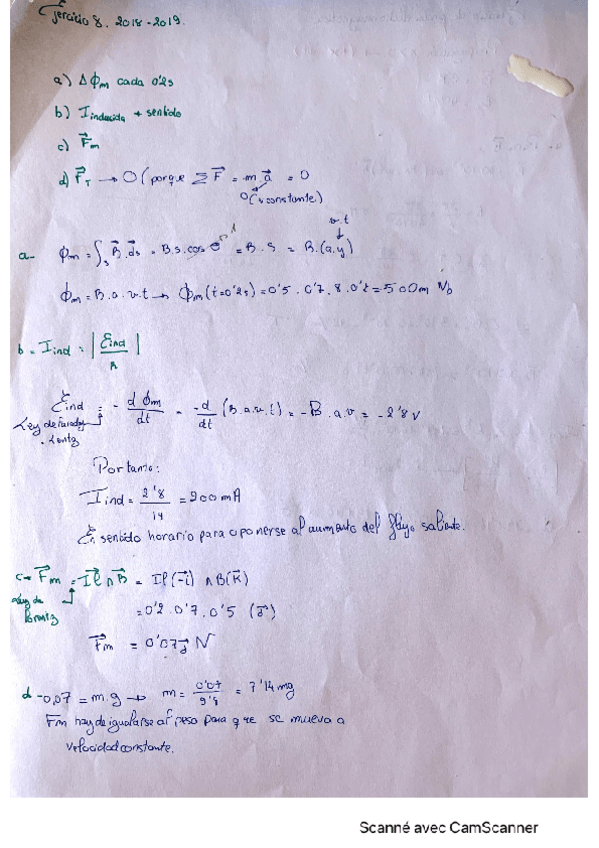 Ejercicio 8. 2018-2019.
a) ΔΦm cada 0'2s
b) I inducida + sentido
c) F⃗m
d) F⃗T → 0 (porque Σ F⃗ = m a⃗ = 0
0 (v constante)
v.t
a- Φm = ∫s B⃗.ds⃗ = B.s.cos θ = B.S = B.(a.y)
Φm = B.a.v.t → Φm (t=0'2s) = 0'5.0'7.8.0'2 =
b- I ind = | Ɛind / R |
Ɛind = - d Φm / dt = -d / dt (B.a.v.t) = -B.a.v = -2'8 V
Ley de Faraday
- Lentz
Por tanto:
I ind = 2'8 / 14 = 200 mA
En sentido horario para oponerse al aumento del flujo saliente.
c- F⃗m = I l⃗ ∧ B⃗ = Il (-i⃗) ∧ B(k⃗)
Ley de
Lorentz
= 0'2.0'7.0'5 (j⃗)
F⃗m = 0'07 j⃗ N
d- 0,07 = m.g → m = 0'07 / 9'8 = 7'14 mg
Fm hay de igualarse al peso para que se mueva a
velocidad constante.
Scanné avec CamScanner